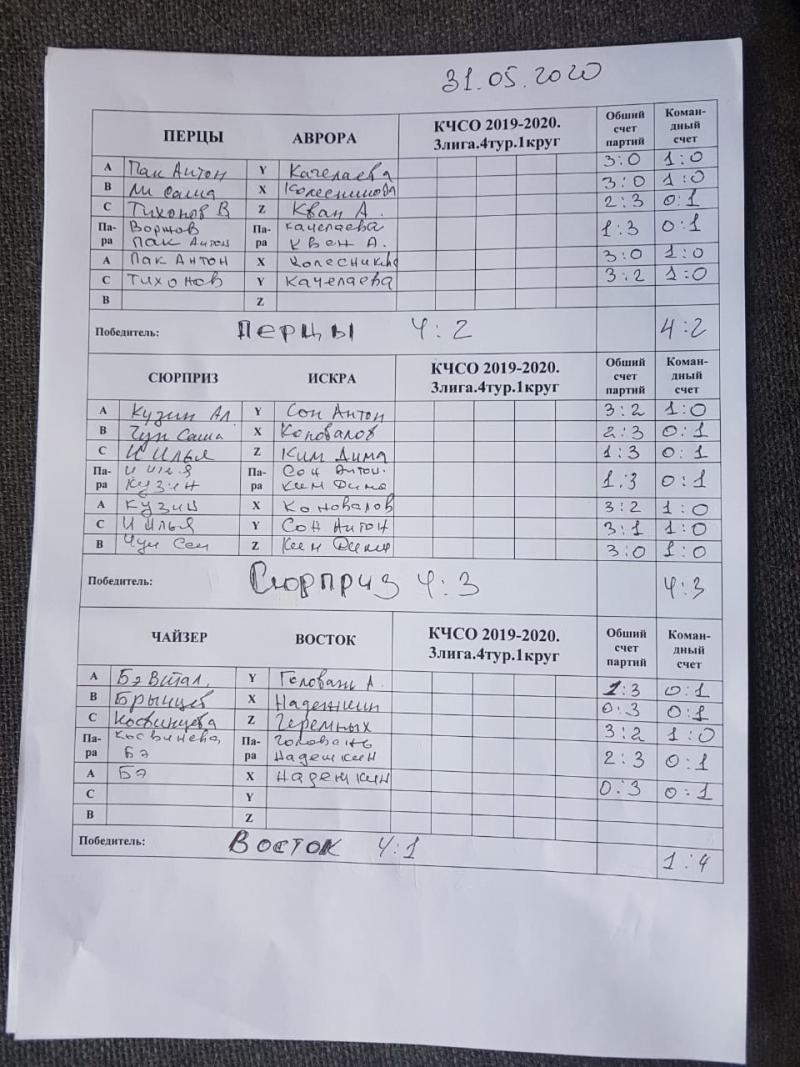 31.05.2020
ПЕРЦЫ АВРОРА КЧСО 2019-2020. 3лига.4тур.1круг Общий счет партий Коман-дный счет
A Пак Антон Y Качелаева 3:0 1:0
B Ли Саша X Колесникова 3:0 1:0
C Тихонов В Z Кван А. 2:3 0:1
Па-ра Ворцов Пак Антон Па-ра Качелаева Квен А. 1:3 0:1
A Пак Антон X Колесникова 3:0 1:0
C Тихонов Y Качелаева 3:2 1:0
B Z
Победитель: Перцы 4:2 4:2
СЮРПРИЗ ИСКРА КЧСО 2019-2020. 3лига.4тур.1круг Общий счет партий Коман-дный счет
A Кузин Ал. Y Сон Антон 3:2 1:0
B Чун Саша X Коновалов 2:3 0:1
C И Илья Z Ким Дима 1:3 0:1
Па-ра И Кузин Па-ра Сон Антон. Ким Дима 1:3 0:1
A Кузин X Коновалов 3:2 1:0
C И Илья Y Сон Антон 3:1 1:0
B Чун Сан Z Ким Дима 3:0 1:0
Победитель: Сюрприз 4:3 4:3
ЧАЙЗЕР ВОСТОК КЧСО 2019-2020. 3лига.4тур.1круг Общий счет партий Коман-дный счет
A Бэ Витал. Y Головань А. 1:3 0:1
B Брынцев X Надежкин 0:3 0:1
C Z 3:2 1:0
Па-ра Бэ Па-ра Головань Надежкин 2:3 0:1
A Бэ X Надежкин 0:3 0:1
C Y
B Z
Победитель: Восток 4:1 1:4